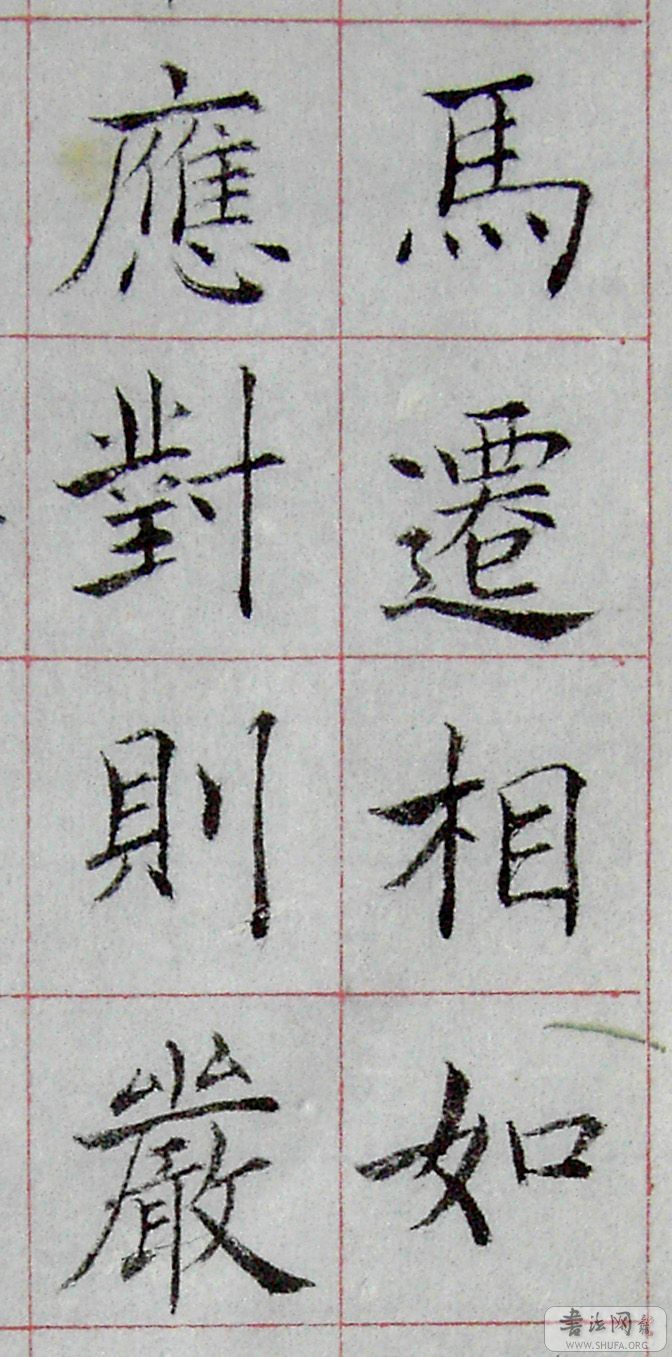 馬遷相如
應對則嚴
書法网
WWW.SHUFA.ORG